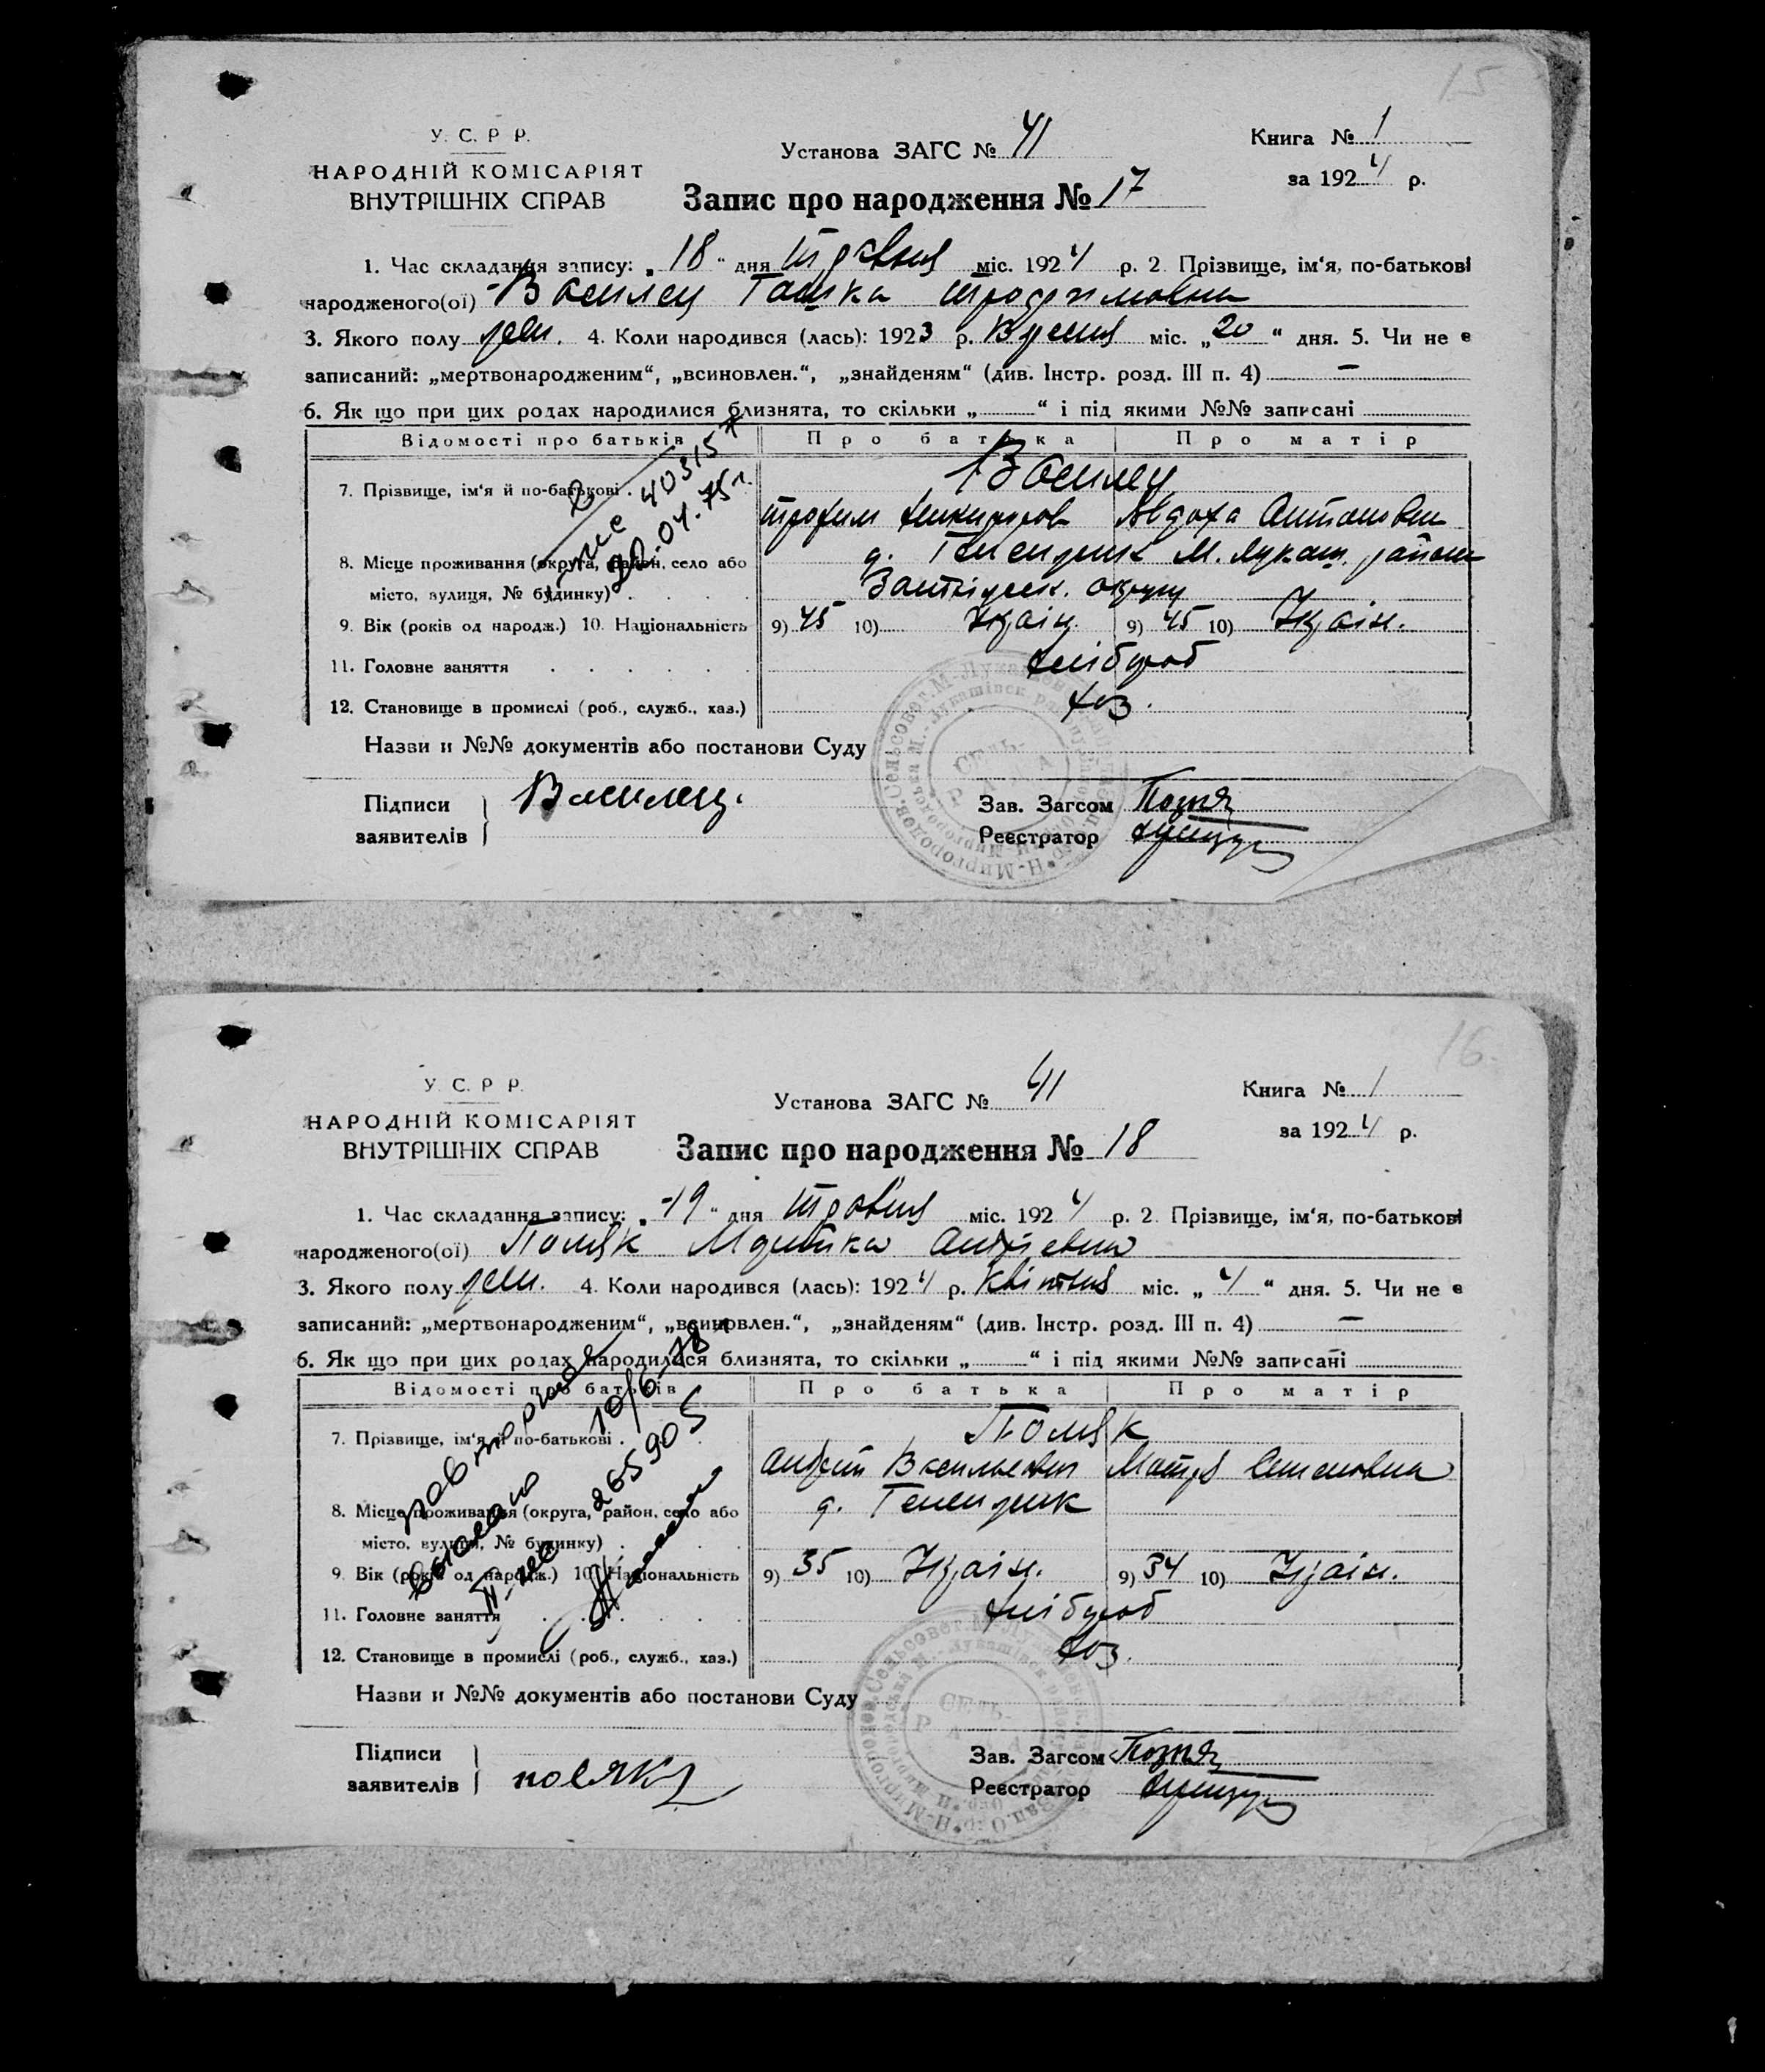 15
У. С. Р Р.
НАРОДНІЙ КОМІСАРІЯТ
ВНУТРІШНІХ СПРАВ
Установа ЗАГС № 41
Книга № 1
за 1924 р.
Запис про народження № 17
1. Час складання запису: „18“ дня Травня міс. 1924 р. 2. Прізвище, ім‘я, по-батькові
народженого(ої) Василец Гашка Трофимовна
3. Якого полу жен. 4. Коли народився (лась): 1923 р. Вресня міс. „20“ дня. 5. Чи не є
записаний: „мертвонародженим“, „всиновлен.“, „знайденям“ (див. Інстр. розд. III п. 4) —
6. Як що при цих родах народилися близнята, то скільки „ “ і під якими №№ записані
Відомості про батьків Про батька Про матір
7. Прізвище, ім‘я й по-батькові . Василец
Трофим Никифоров Авдотя Антоновн
8. Місце проживання (округа, район, село або д. Генендорик М. Лукаш. район
місто, вулиця, № будинку) Запоріжск. округу
9. Вік (років од народж.) 10. Національність 9) 45 10) Украін 9) 45 10) Украін.
11. Головне заняття хлібороб
12. Становище в промислі (роб., служб., хаз.) хоз.
403157
20.04.75 г.
Назви и №№ документів або постанови Суду
Підписи заявителів Василец.
Зав. Загсом
Реєстратор
16.
У. С. Р Р.
НАРОДНІЙ КОМІСАРІЯТ
ВНУТРІШНІХ СПРАВ
Установа ЗАГС № 41
Книга № 1
за 1924 р.
Запис про народження № 18
1. Час складання запису: „19“ дня Травня міс. 1924 р. 2. Прізвище, ім‘я, по-батькові
народженого(ої) Поляк Мотька Андріевна
3. Якого полу жен. 4. Коли народився (лась): 1924 р. Квітня міс. „4“ дня. 5. Чи не є
записаний: „мертвонародженим“, „всиновлен.“, „знайденям“ (див. Інстр. розд. III п. 4) —
6. Як що при цих родах народилися близнята, то скільки „ “ і під якими №№ записані
Відомості про батьків Про батька Про матір
7. Прізвище, ім‘я й по-батькові . Поляк
Андрей Васильевич Мотря Семеновна
8. Місце проживання (округа, район, село або д. Генендорик
місто, вулиця, № будинку)
9. Вік (років од народж.) 10. Національність 9) 35 10) Украін. 9) 34 10) Украін.
11. Головне заняття хлібороб
12. Становище в промислі (роб., служб., хаз.) хоз.
повторное
выслано 10/6-78
265905
Назви и №№ документів або постанови Суду
Підписи заявителів поляк
Зав. Загсом
Реєстратор